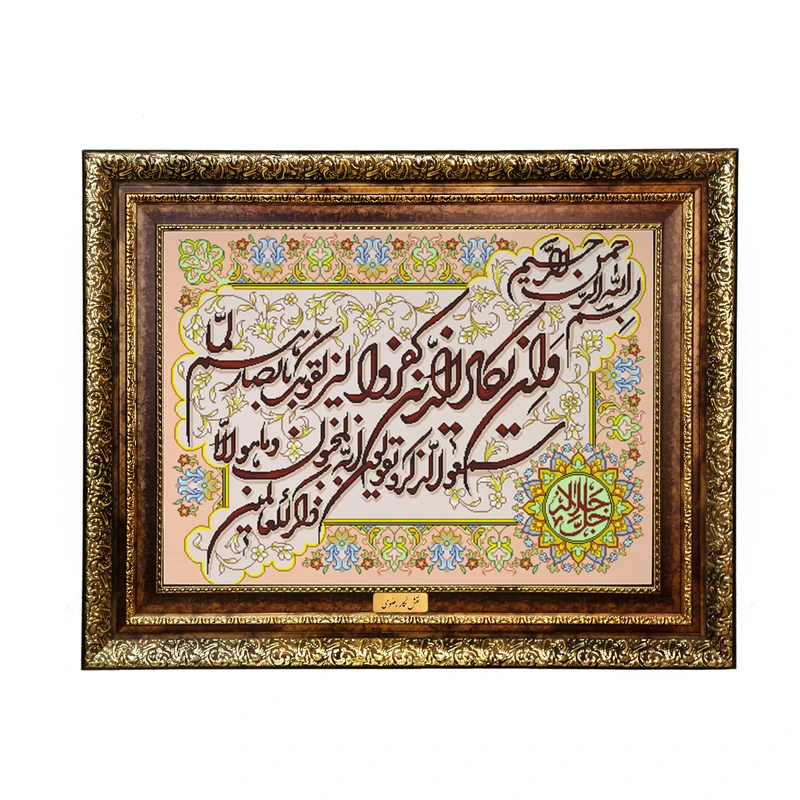 بسم الله الرحمن الرحیم
وان یکاد الذین کفروا لیزلقونک بابصارهم لما
سمعوا الذکر و یقولون انه لمجنون وما هو الا
ذکر للعالمین
جل جلاله
نقش نگار رضوی